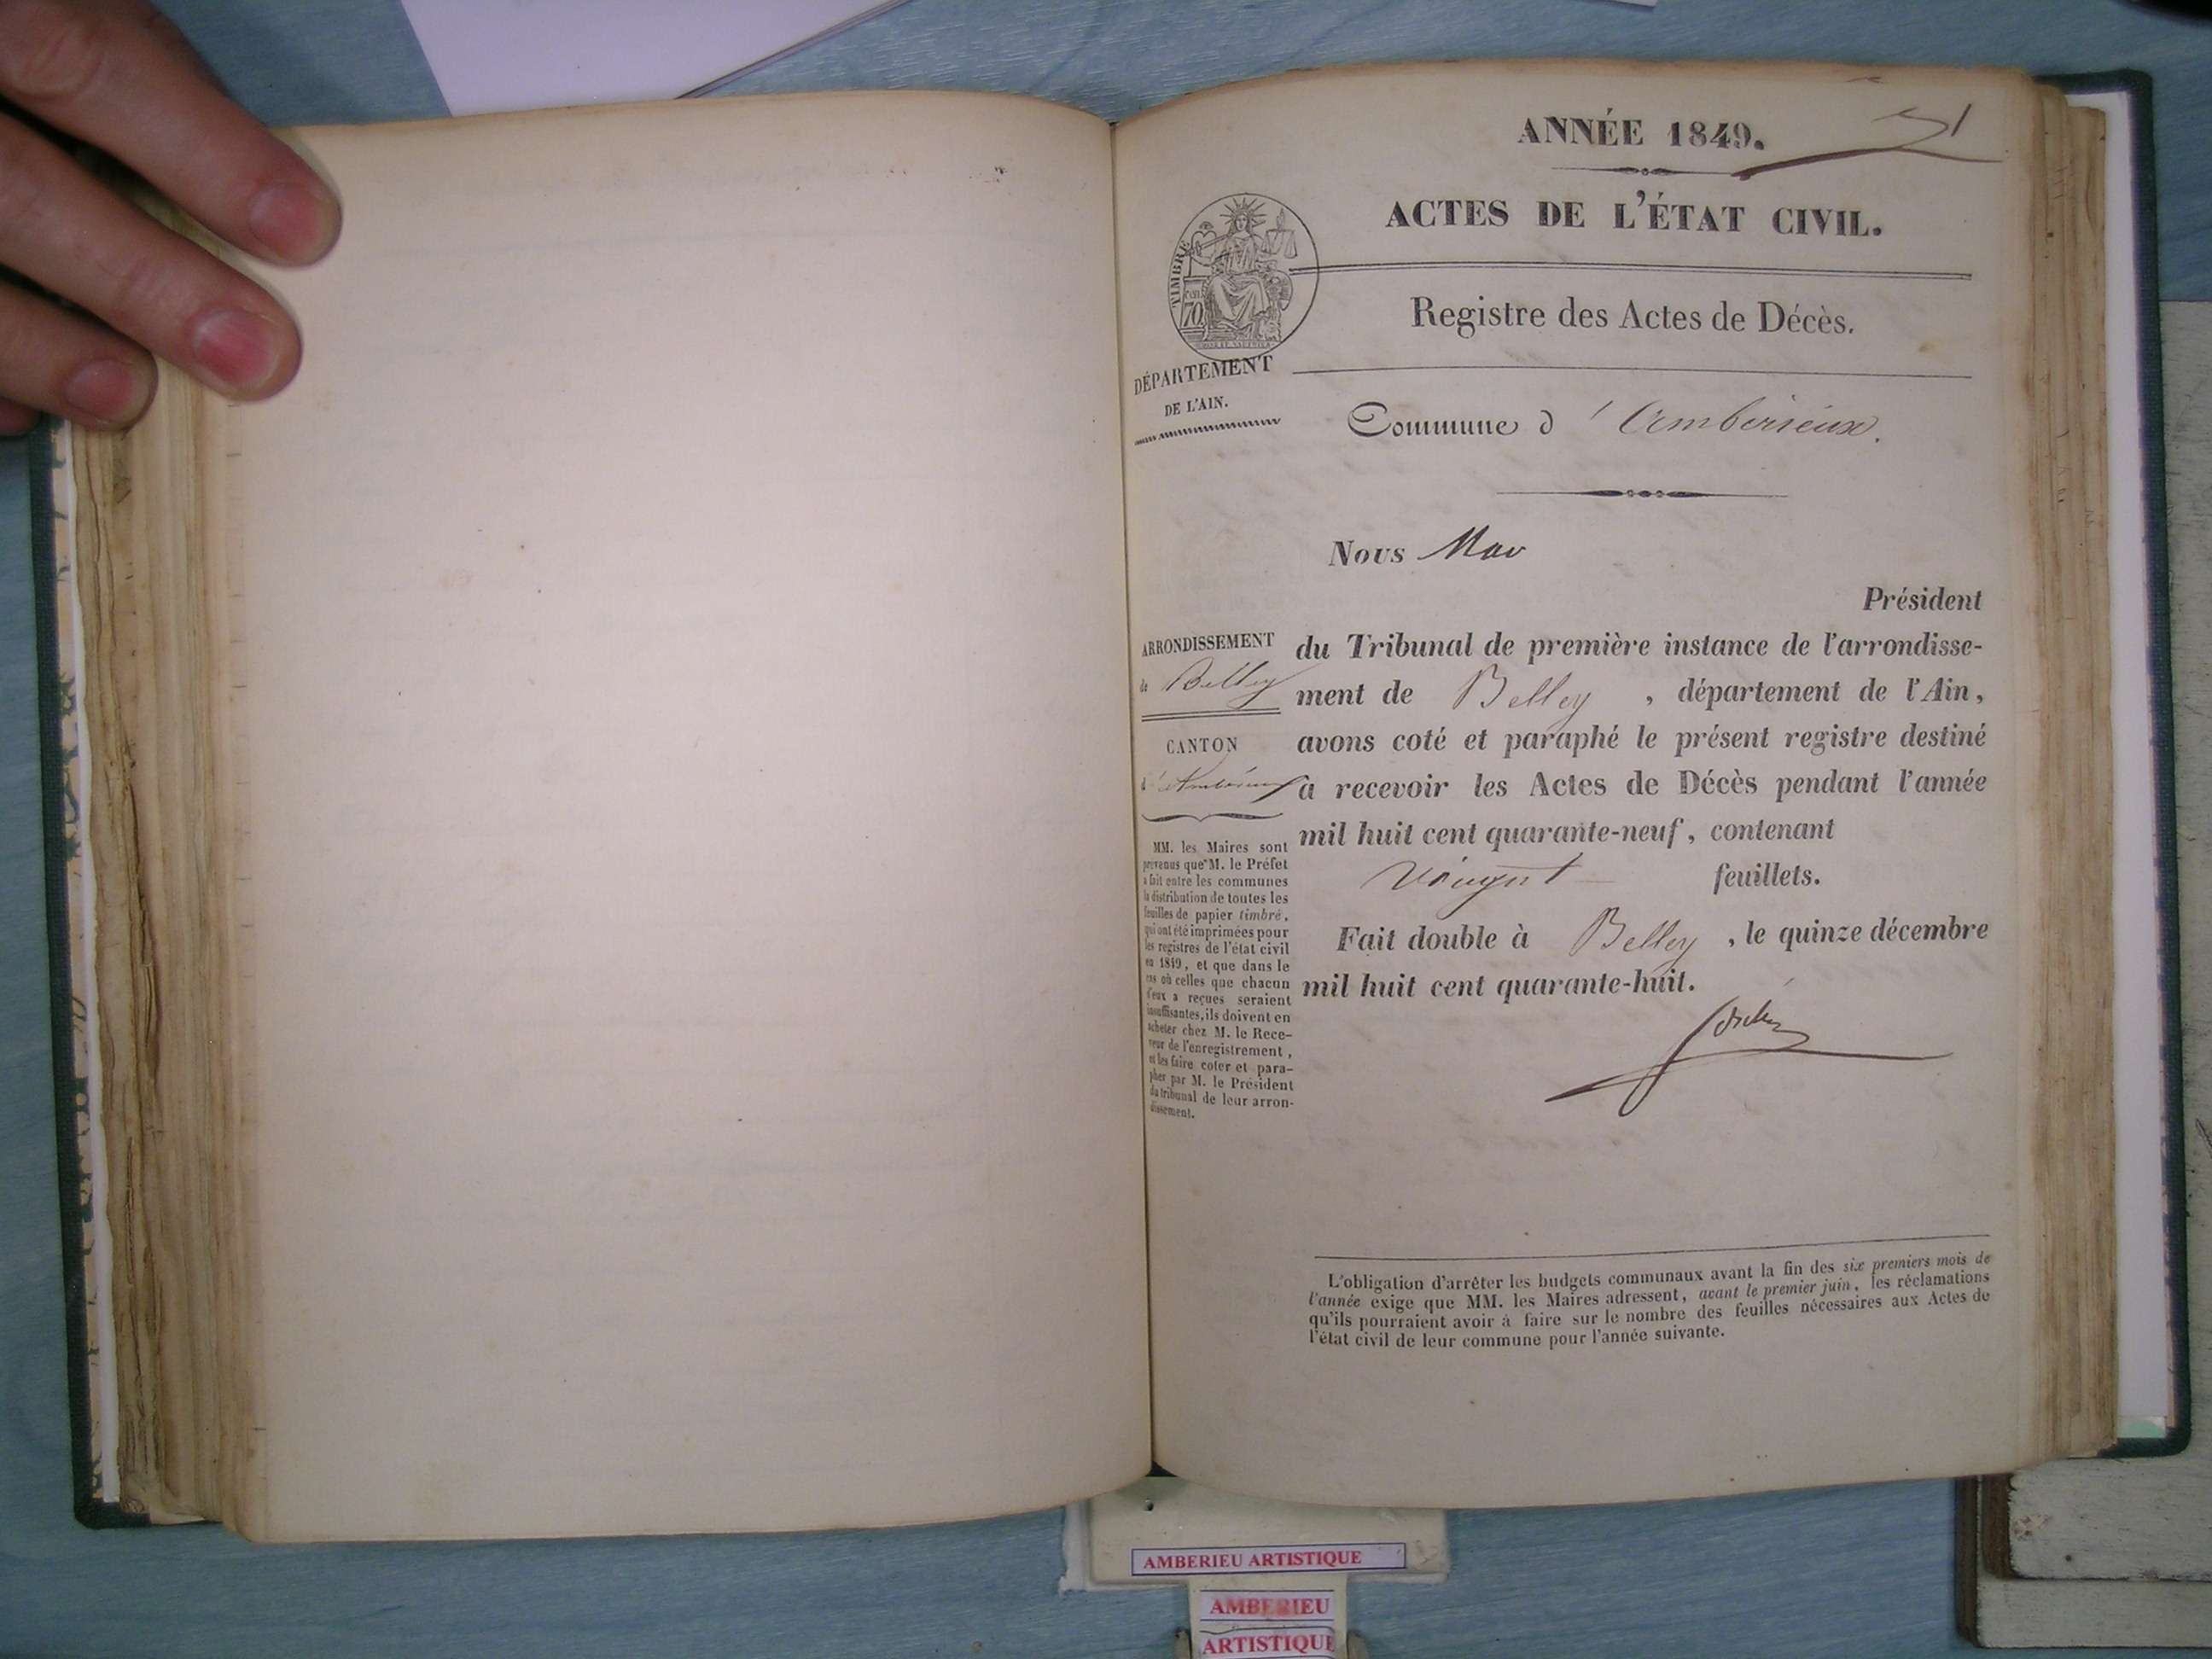 ANNÉE 1849.
ACTES DE L'ÉTAT CIVIL.
TIMBRE
70
Registre des Actes de Décès.
DÉPARTEMENT
DE L'AIN.
Commune d'Ambérieux.
Nous
Président
du Tribunal de première instance de l'arrondisse-
ment de Belley, département de l'Ain,
avons coté et paraphé le présent registre destiné
à recevoir les Actes de Décès pendant l'année
mil huit cent quarante-neuf, contenant
vingt feuillets.
Fait double à Belley, le quinze décembre
mil huit cent quarante-huit.
ARRONDISSEMENT
de Belley
CANTON
d'Ambérieux
MM. les Maires sont
prévenus que M. le Préfet
a fait entre les communes
la distribution de toutes les
feuilles de papier timbré,
qui ont été imprimées pour
les registres de l'état civil
en 1849, et que dans le
cas où celles que chacun
d'eux a reçues seraient
insuffisantes, ils doivent en
acheter chez M. le Rece-
veur de l'enregistrement,
et les faire coter et para-
pher par M. le Président
du tribunal de leur arron-
dissement.
L'obligation d'arrêter les budgets communaux avant la fin des six premiers mois de
l'année exige que MM. les Maires adressent, avant le premier juin, les réclamations
qu'ils pourraient avoir à faire sur le nombre des feuilles nécessaires aux Actes de
l'état civil de leur commune pour l'année suivante.
AMBERIEU ARTISTIQUE
AMBERIEU
ARTISTIQUE